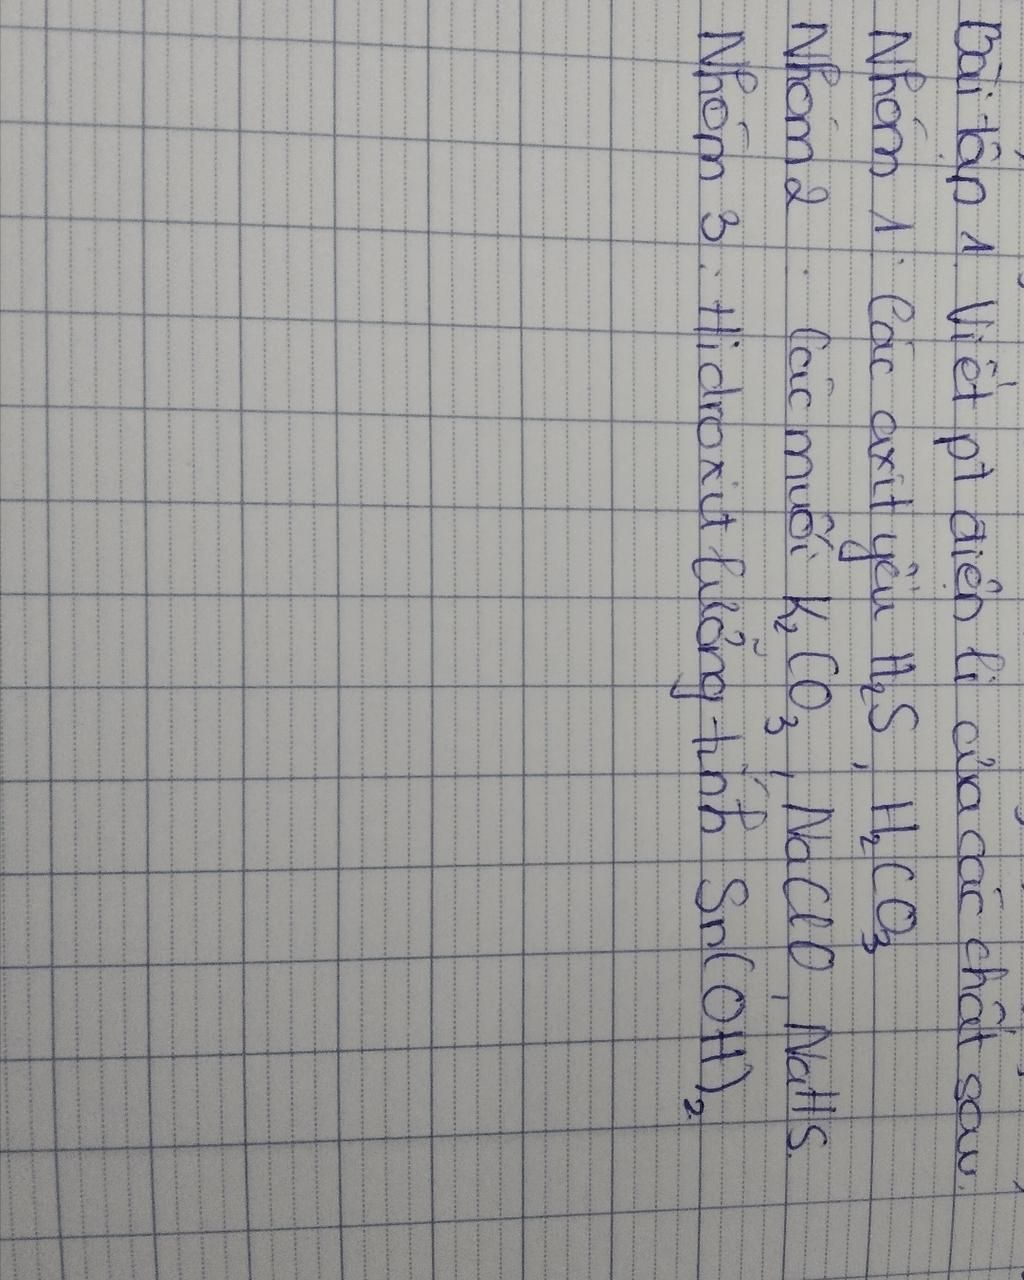 Bài tập 1. Viết pt điện li của các chất sau.
Nhóm 1: Các axit yếu H₂S, H₂CO₃
Nhóm 2: Các muối K₂CO₃, NaClO, NaHS.
Nhóm 3: Hidroxit lưỡng tính Sn(OH)₂